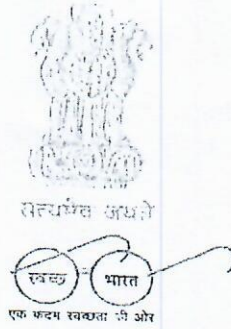 सत्यमेव जयते
स्वच्छ भारत
एक कदम स्वच्छता की ओर